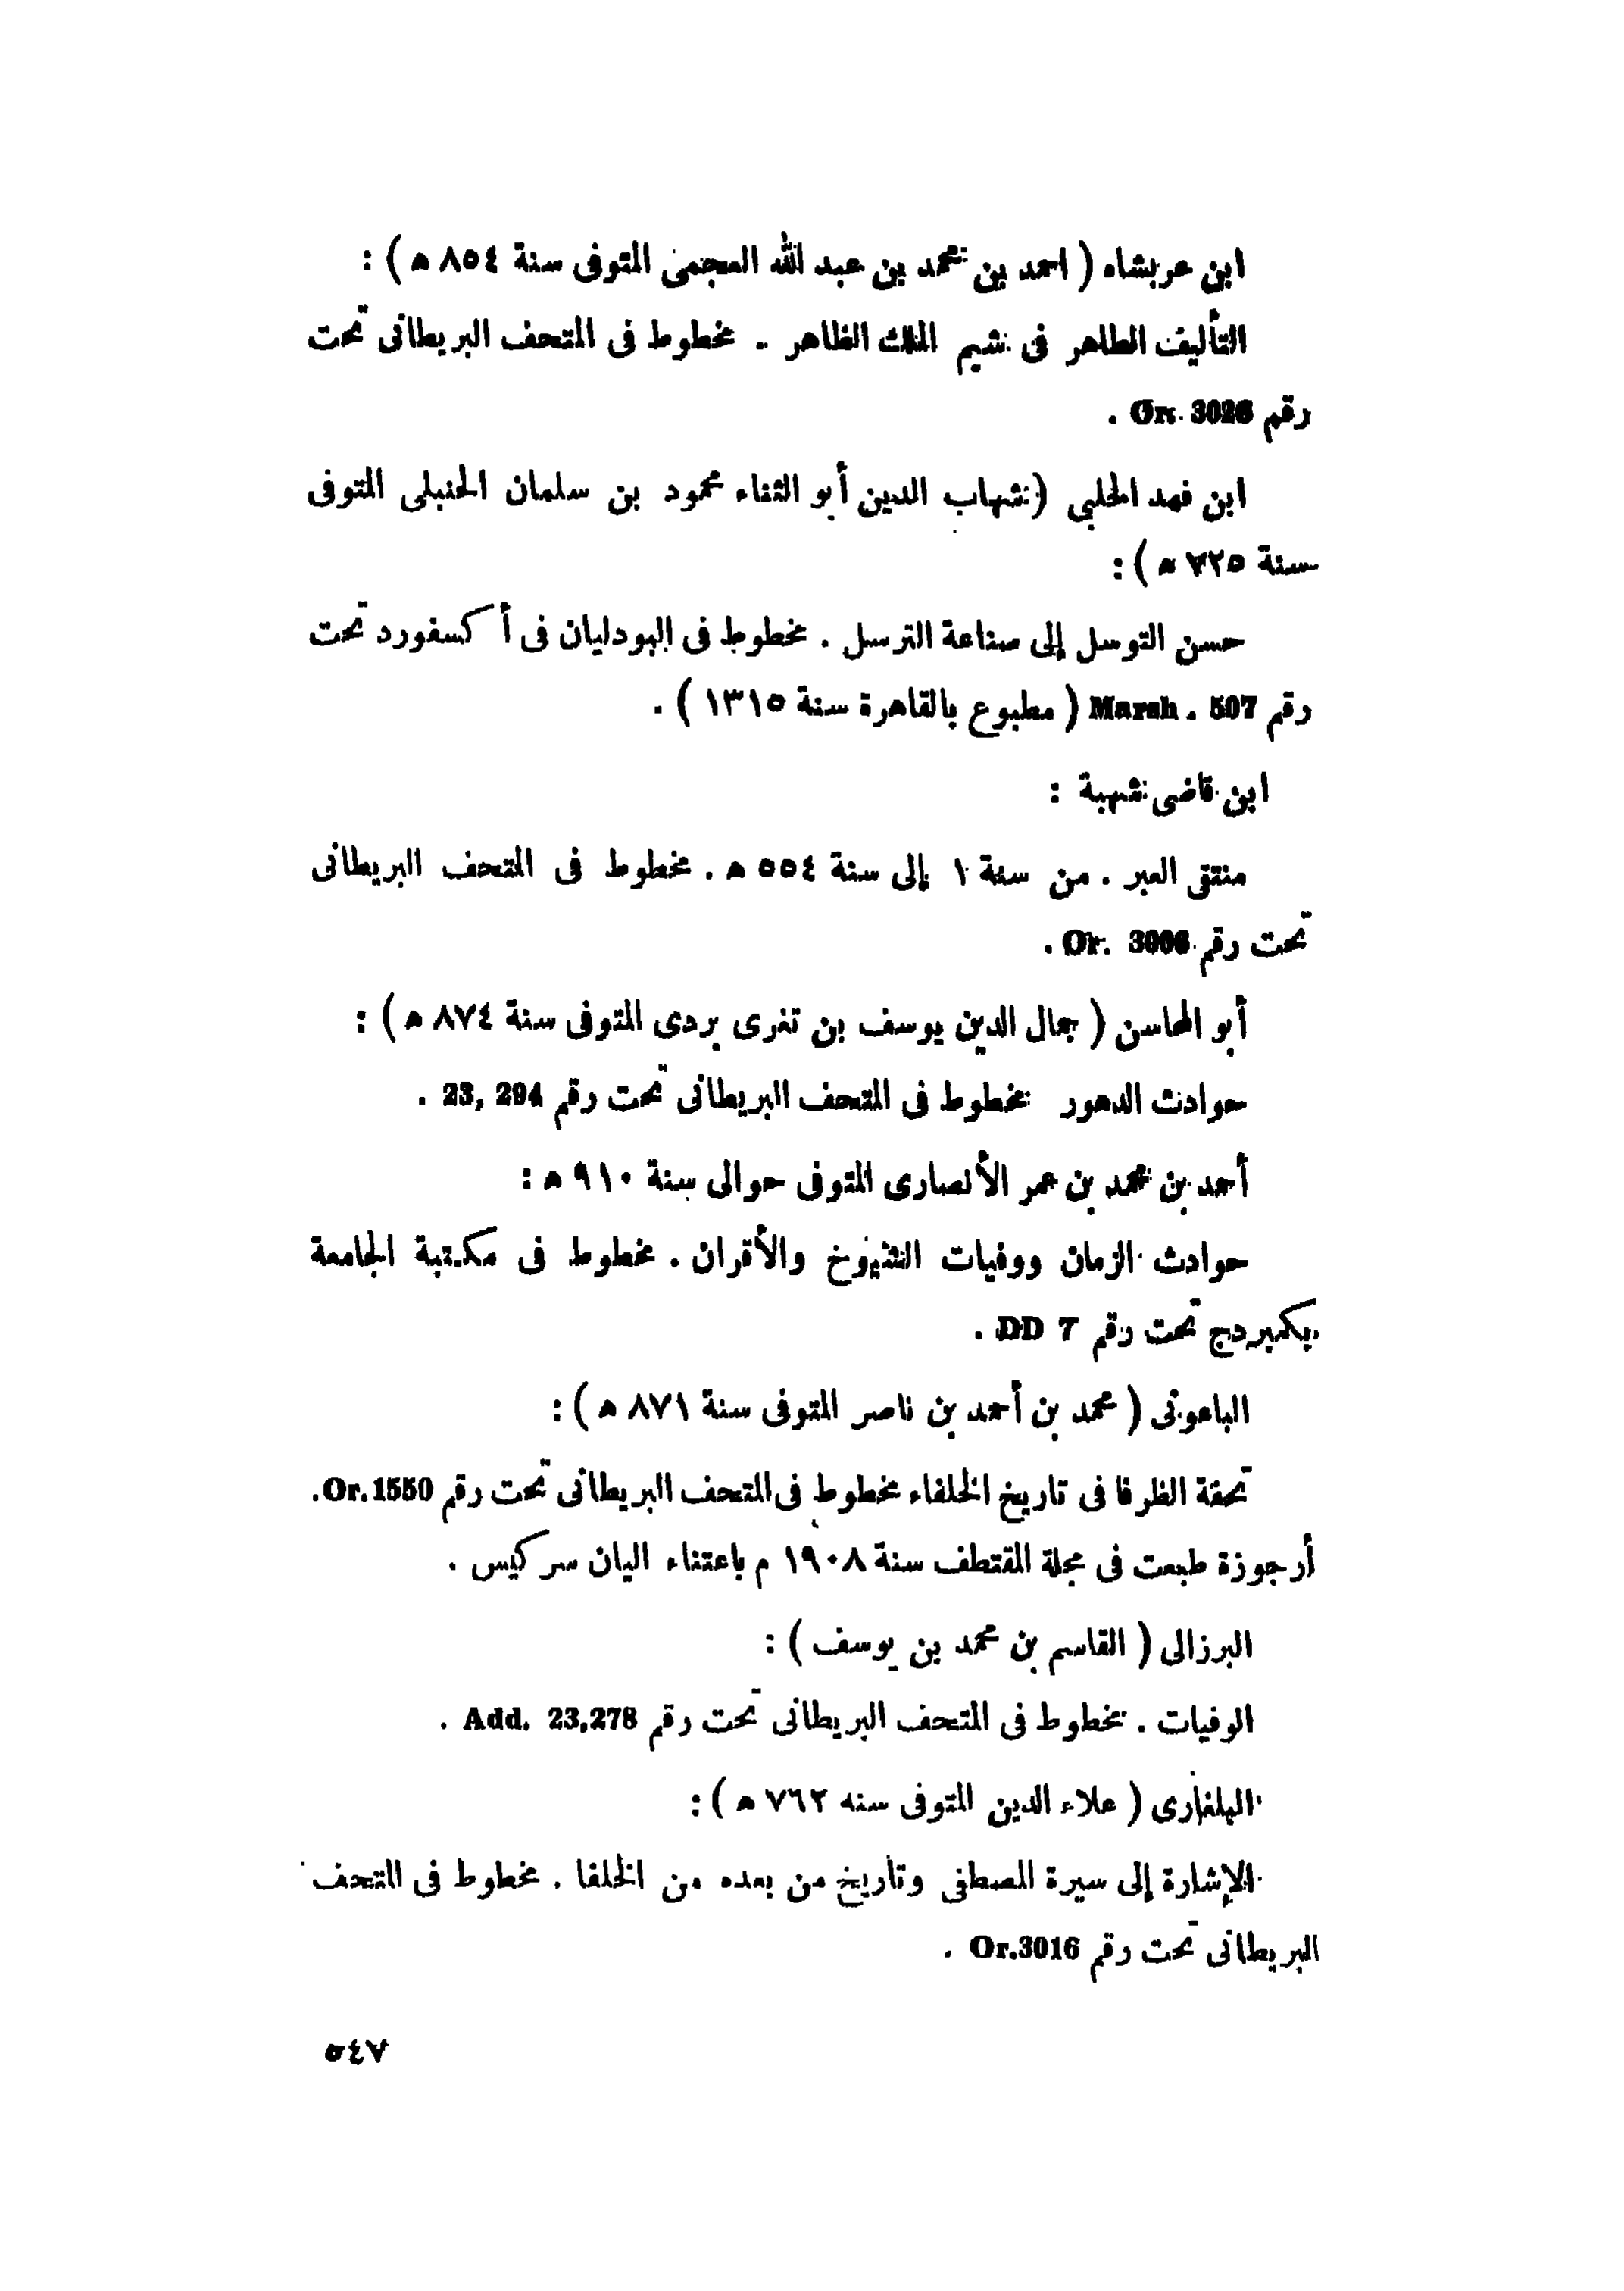 ابن عربشاه ( احمد بن محمد بن عبد الله العجمى المتوفى سنة ٨٥٤ ھ ) :
التأليف الطاهر فى شيم الملك الظاهر . مخطوط فى المتحف البريطانى تحت
رقم Or. 3026 .
ابن فهد الحلبي (شهاب الدين أبو الثناء محمود بن سلمان الحنبلى المتوفى
سنة ٧٢٥ ھ ) :
حسن التوسل إلى صناعة الترسل . مخطوط فى البودليان فى أكسفورد تحت
رقم Marsh . 507 ( مطبوع بالقاهرة سنة ١٣١٥ ) .
ابن قاضى شهبة :
منتقى العبر . من سنة ١ إلى سنة ٥٥٤ ھ . مخطوط فى المتحف البريطانى
تحت رقم Or. 3006 .
أبو المحاسن ( جمال الدين يوسف بن تغرى بردى المتوفى سنة ٨٧٤ ھ ) :
حوادث الدهور مخطوط فى المتحف البريطانى تحت رقم 23, 294 .
أحمد بن محمد بن عمر الأنصارى المتوفى حوالى سنة ٩١٠ ھ :
حوادث الزمان ووفيات الشيوخ والأقران . مخطوط فى مكتبة الجامعة
بكمبردج تحت رقم DD 7 .
الباعونى ( محمد بن أحمد بن ناصر المتوفى سنة ٨٧١ ھ ) :
تحفة الظرفا فى تاريخ الخلفاء مخطوط فى المتحف البريطانى تحت رقم Or.1550 .
أرجوزة طبعت فى مجلة المقتطف سنة ١٩٠٨ م باعتناء اليان سركيس .
البرزالى ( القاسم بن محمد بن يوسف ) :
الوفيات . مخطوط فى المتحف البريطانى تحت رقم Add. 23,278 .
البلغارى ( علاء الدين المتوفى سنه ٧٦٢ ھ ) :
الإشارة إلى سيرة المصطفى وتاريخ من بعده من الخلفا . مخطوط فى المتحف
البريطانى تحت رقم Or.3016 .
٥٤٧